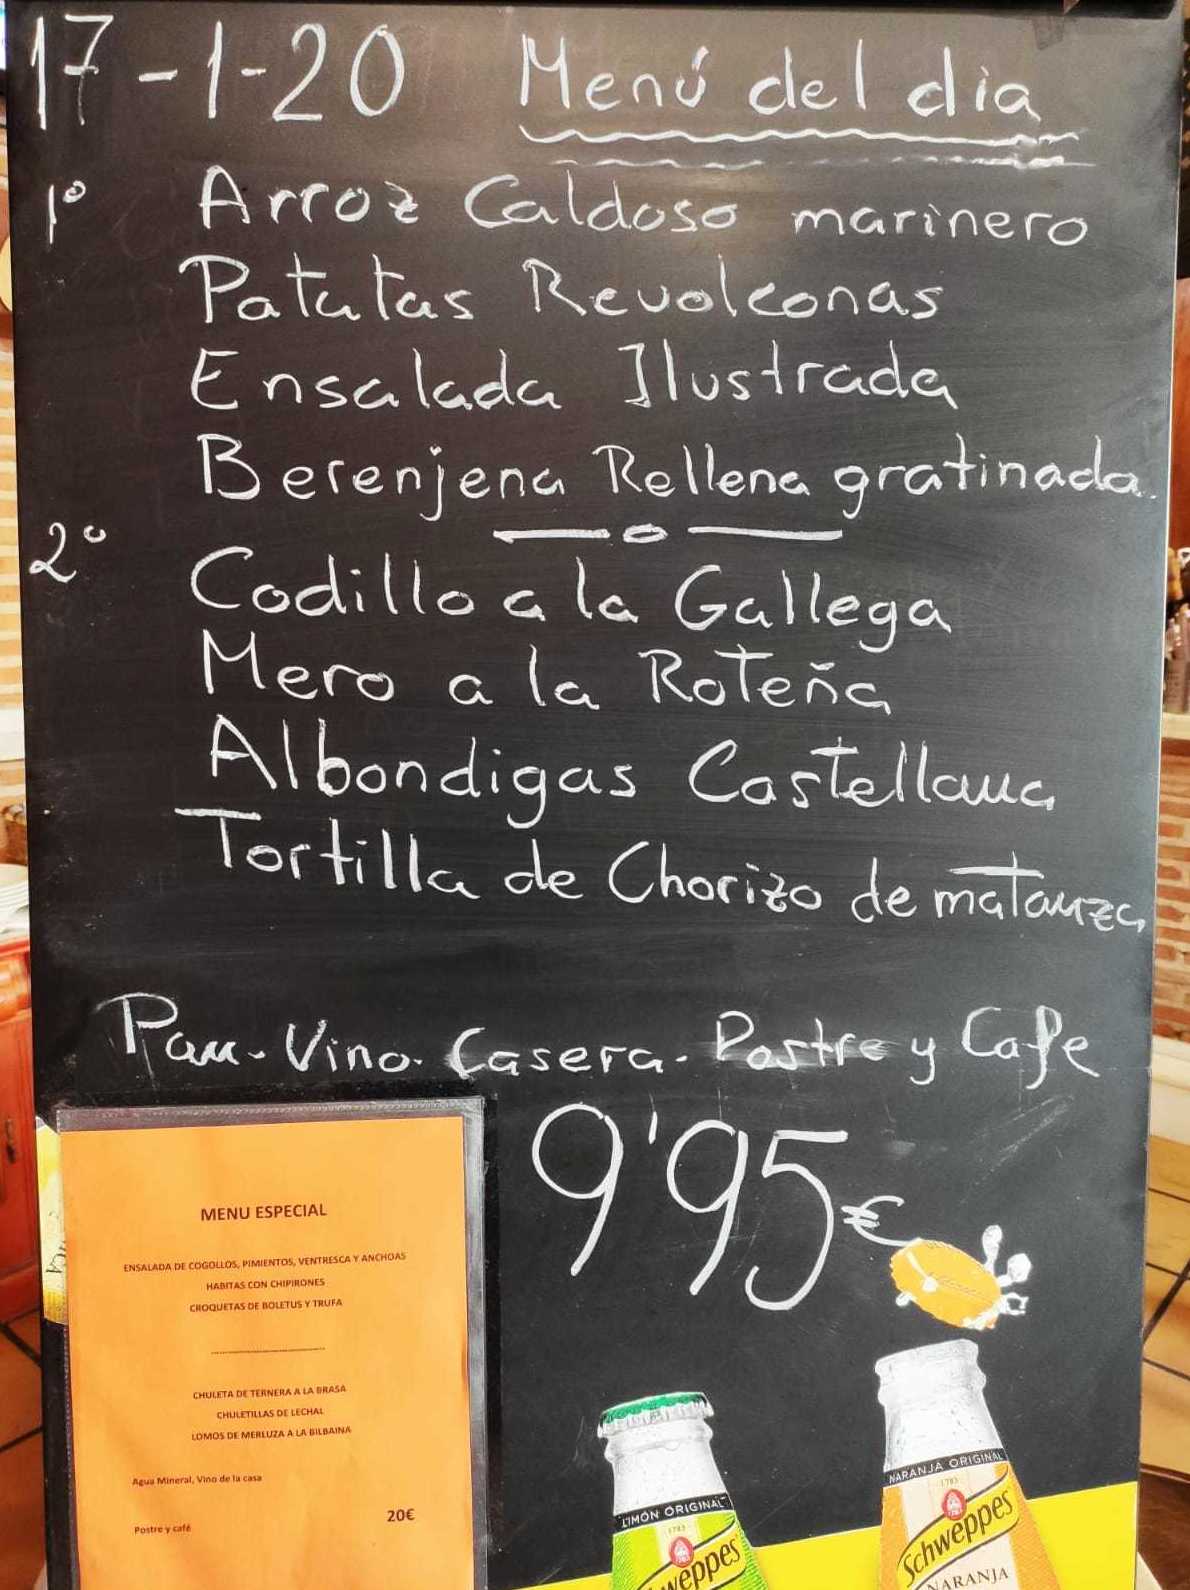 17-1-20 Menú del dia
1º Arroz Caldoso marinero
Patatas Revolconas
Ensalada Ilustrada
Berenjena Rellena gratinada.
2º
Codillo a la Gallega
Mero a la Roteña
Albondigas Castellana
Tortilla de Chorizo de matanza
Pan. Vino. Casera. Postre y Cafe
9'95€
MENU ESPECIAL
ENSALADA DE COGOLLOS, PIMIENTOS, VENTRESCA Y ANCHOAS
HABITAS CON CHIPIRONES
CROQUETAS DE BOLETUS Y TRUFA
CHULETA DE TERNERA A LA BRASA
CHULETILLAS DE LECHAL
LOMOS DE MERLUZA A LA BILBAINA
Agua Mineral, Vino de la casa
20€
Postre y café
LIMÓN ORIGINAL
1783
weppes
NARANJA ORIGINAL
1783
Schweppes
NARANJA